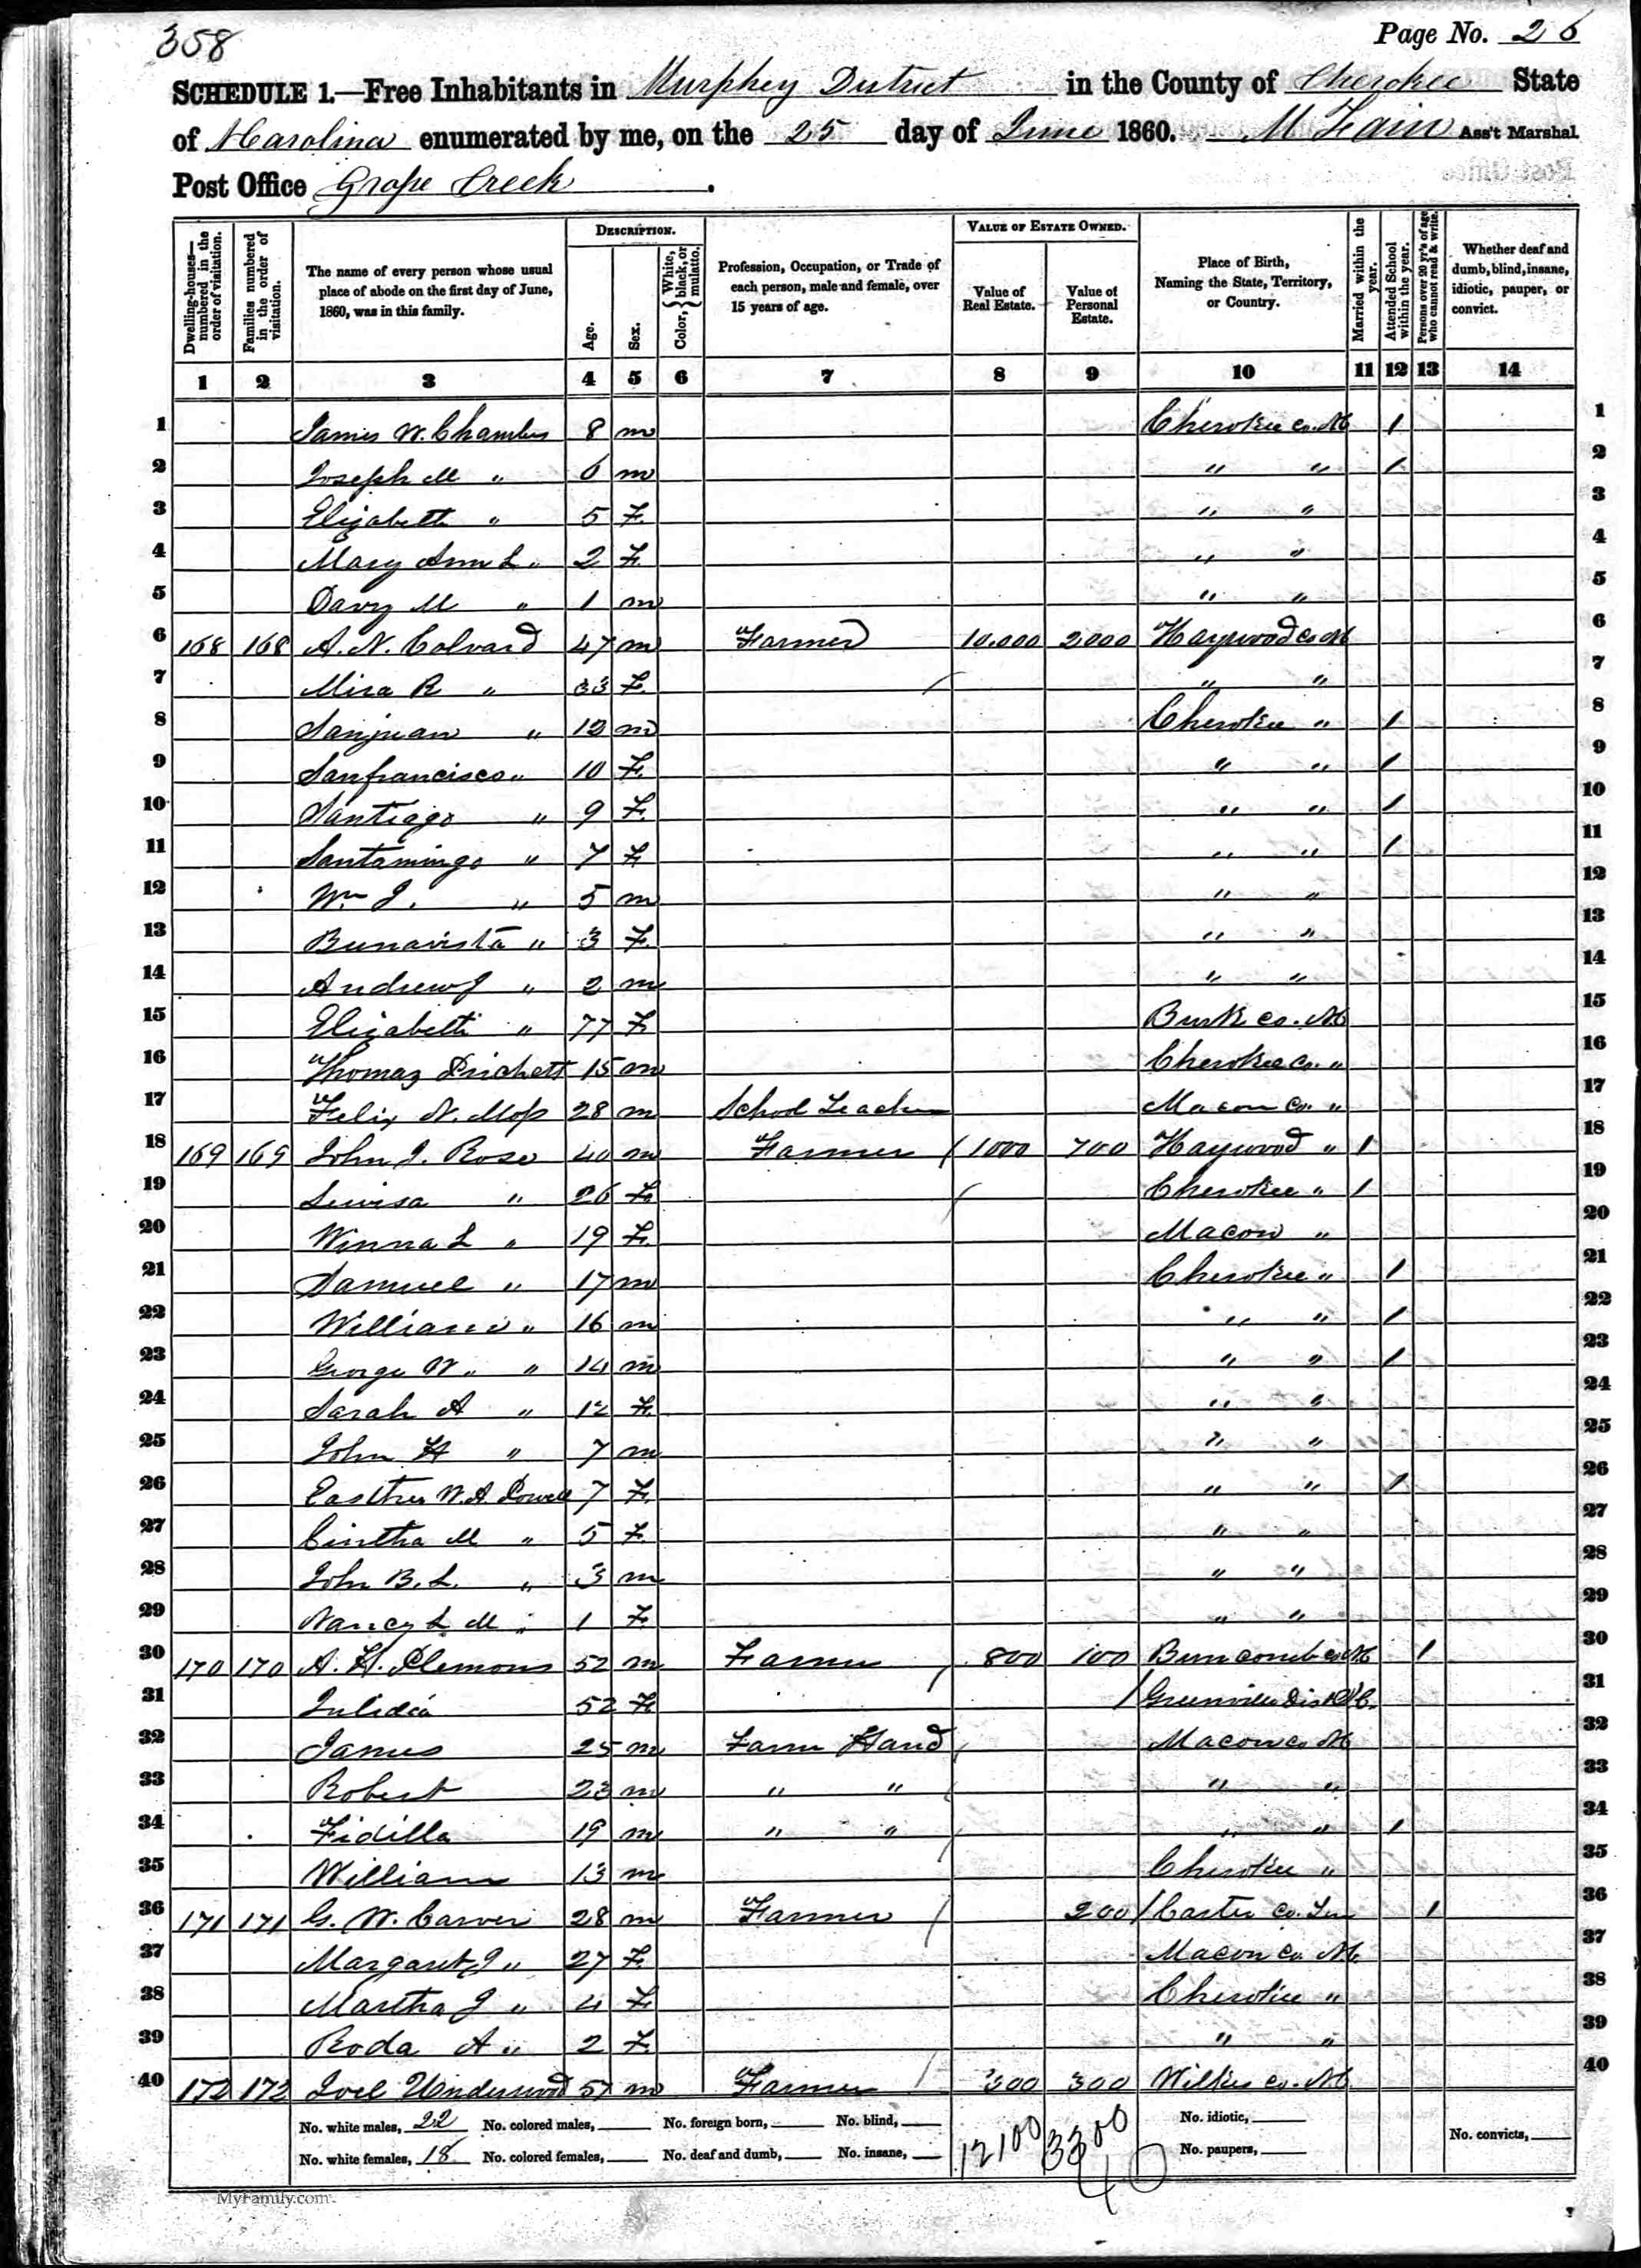 358
Page No. 26
SCHEDULE 1.—Free Inhabitants in Murphey District in the County of Cherokee State
of N Carolina enumerated by me, on the 25 day of June 1860. M Fain Ass't Marshal
Post Office Grape Creek.
DESCRIPTION. VALUE OF ESTATE OWNED.
Dwelling-houses—numbered in the order of visitation.
Families numbered in the order of visitation.
The name of every person whose usual place of abode on the first day of June, 1860, was in this family.
Age.
Sex.
Color, { White, black, or mulatto.
Profession, Occupation, or Trade of each person, male and female, over 15 years of age.
Value of Real Estate.
Value of Personal Estate.
Place of Birth, Naming the State, Territory, or Country.
Married within the year.
Attended School within the year.
Persons over 20 yr's of age who cannot read & write.
Whether deaf and dumb, blind, insane, idiotic, pauper, or convict.
1 2 3 4 5 6 7 8 9 10 11 12 13 14
1 James W. Chambers 8 m Cherokee co. NC / 1
2 Joseph M " 6 m " " / 2
3 Elizabeth " 5 F " " 3
4 Mary Ann L " 2 F " " 4
5 Davy M " 1 m " " 5
6 168 168 A. N. Colvard 47 m Farmer 10.000 2000 Haywood Co NC 6
7 Mira R " 33 F / " " 7
8 Sanjuan " 12 m Cherokee " / 8
9 Sanfrancisco " 10 F " " / 9
10 Santiago " 9 F " " / 10
11 Santamingo " 7 F " " / 11
12 Wm J. " 5 m " " 12
13 Bunavista " 3 F " " 13
14 Andrew J " 2 m " " 14
15 Elizabeth " 77 F Burk co. NC 15
16 Thomas Prichett 15 m Cherokee Co. " 16
17 Felix N. Moss 28 m School Teacher Macon Co. " 17
18 169 169 John J. Rose 40 m Farmer / 1000 700 Haywood " / 18
19 Luvisa " 26 F / Cherokee " / 19
20 Winna L " 19 F Macon " 20
21 Samuel " 17 m Cherokee " / 21
22 William " 16 m " " / 22
23 George W. " 14 m " " / 23
24 Sarah A " 12 F " " 24
25 John H " 7 m " " 25
26 W. A Powell 7 F " " / 26
27 Cintha M " 5 F " " 27
28 John B. L. " 3 m " " 28
29 Nancy L M " 1 F " " 29
30 170 170 A. H. Clemons 52 m Farmer / 800 100 Buncomb co NC / 30
31 52 F / Greenville Dist S C. 31
32 James 25 m Farm Hand / Macon co NC 32
33 Robert 23 m " " / " " 33
34 Fidilla 19 m " " / " " / 34
35 William 13 m Cherokee " 35
36 171 171 G. W. Carver 28 m Farmer / 200 / Carter Co. Ten / 36
37 Margaret J " 27 F Macon Co NC 37
38 Martha J " 4 F Cherokee " 38
39 Roda A " 2 F " " 39
40 172 172 Joel Underwood 57 m Farmer / 300 300 Wilkes co. NC 40
No. white males, 22 No. colored males, No. foreign born, No. blind, 12100 3300 No. idiotic,
No. white females, 18 No. colored females, No. deaf and dumb, No. insane, 40 No. paupers, No. convicts,
MyFamily.com